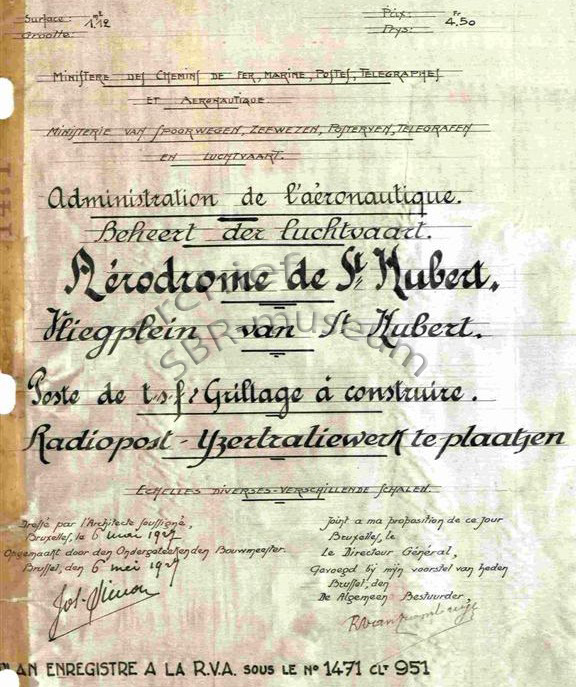 Surface: 1.12
Grootte:
Prix: Fr 4.50
Prys:
MINISTERE DES CHEMINS DE FER, MARINE, POSTES, TELEGRAPHES
ET AERONAUTIQUE.
MINISTERIE VAN SPOORWEGEN, ZEEWEZEN, POSTERYEN, TELEGRAFEN
EN LUCHTVAART.
Administration de l'aéronautique.
Beheert der luchtvaart.
Aérodrome de St Hubert.
Vliegplein van St Hubert.
archief
SBR-museum
Poste de t.s.f: Grillage à construire.
Radiopost - Yzertraliewerk te plaatsen
ECHELLES DIVERSES - VERSCHILLENDE SCHALEN.
Dressé par l'Architecte soussigné,
Bruxelles, le 6 mai 1927
Opgemaakt door den Ondergeteekenden Bouwmeester.
Brussel, den 6 mei 1927
Jos. Simon
Joint a ma proposition de ce jour
Bruxelles, le
Le Directeur Général,
Gevoegd bij mijn voorstel van heden
Brussel, den
De Algemeen Bestuurder,
AN ENREGISTRE A LA R.V.A. SOUS LE No 1471 CLT 951